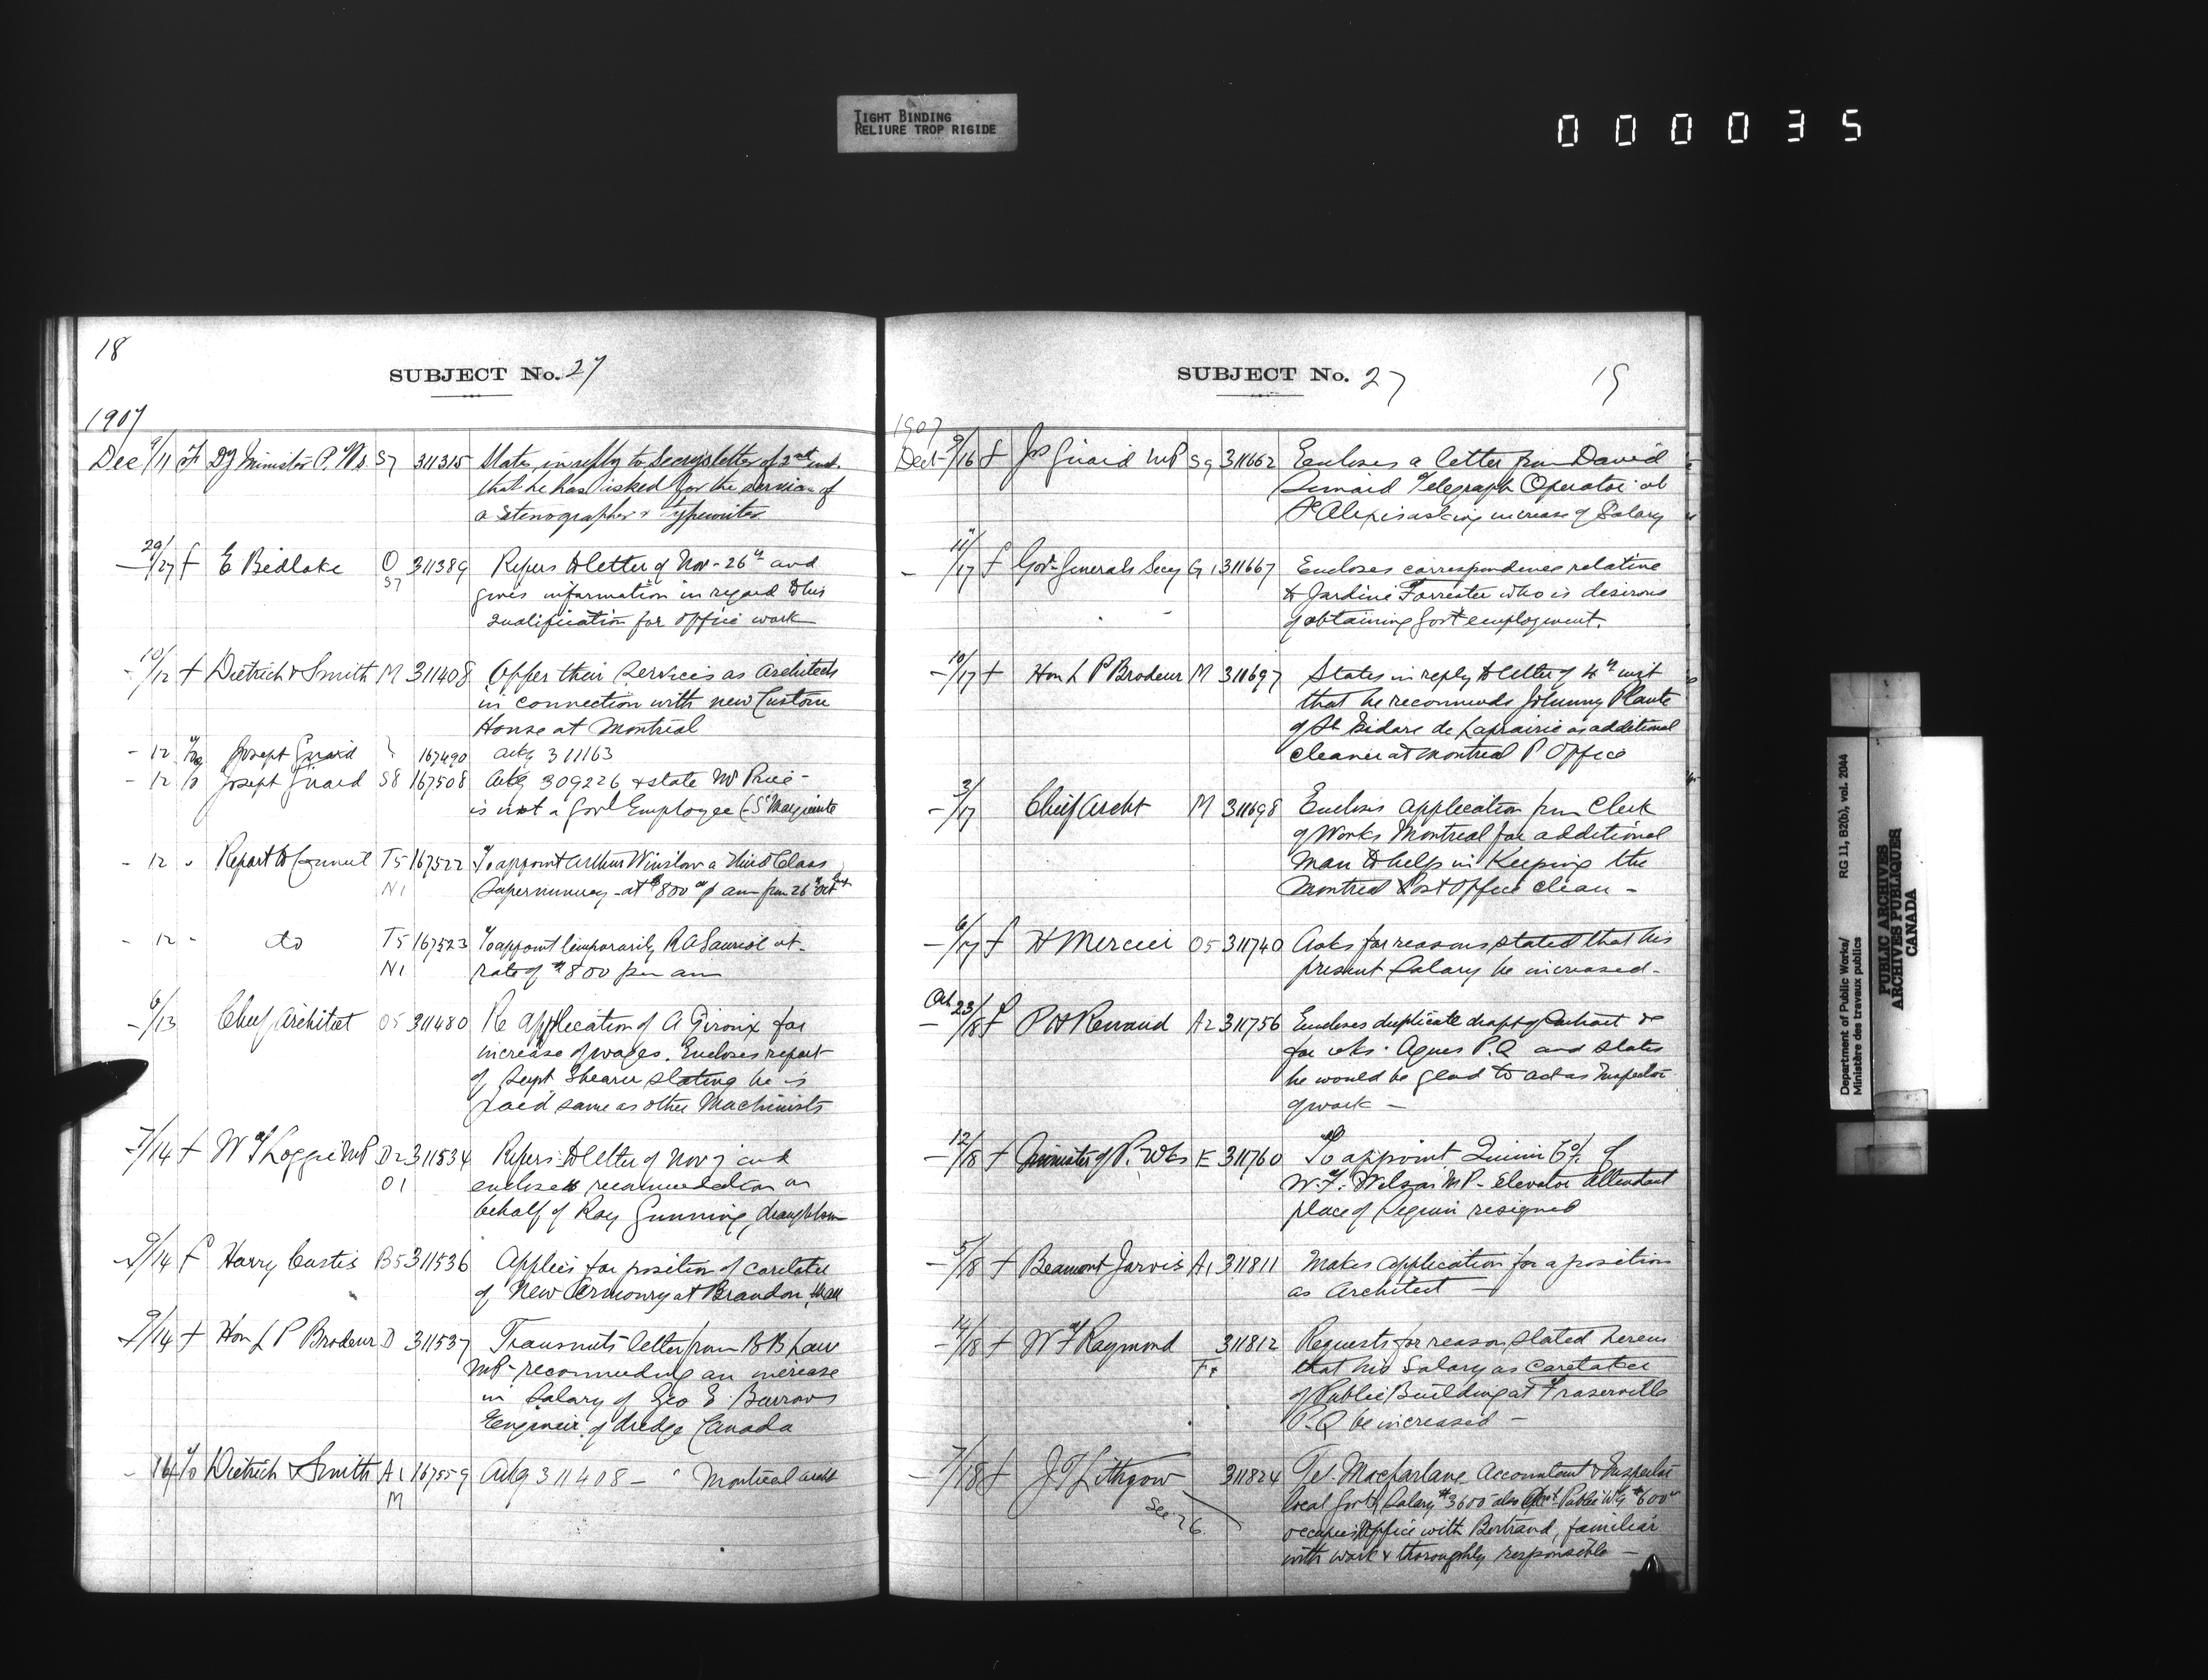 TIGHT BINDING
RELIURE TROP RIGIDE
000035
18
SUBJECT No. 27
1907
Dec 9/11 f Dy Minister P. Wks S7 311315 States in reply to Secrys letter of 3rd inst.
that he has asked for the services of
a Stenographer & typewriter
- 29/27 f E Bedlake O 311389 Refers to letter of Nov - 26th and
S7 gives information in regard to his
qualification for office work
- 10/12 f Dietrich & Smith M 311408 Offer their services as Architects
in connection with new Custom
House at Montreal
- 12 Joseph Girard 167490 Ackg 311163
- 12 Joseph Girard S8 167508 Ackg 309226 & state Mr Price -
is not a Govt Employee
- 12 - Report to Council T5 167522 To appoint Arthur Winslow a Third Class
N1 Supernumery - at $800 p ann from 26th Oct
- 12 - do T5 167523 To appoint temporarily R A Sauriol at
N1 rate of $800 per ann
- 6/13 Chief Architect O5 311480 Re application of A Giroux for
increase of wages. Encloses report
of Supt Shearer stating he is
paid same as other Machinists
- 7/14 f W S Loggie MP D2 311534 Refers to letter of Nov 7 and
O1 encloses recommendation on
behalf of Roy Gunning, draughtsman
- 9/14 f Harry Curtis B5 311536 Applies for position of caretaker
of New Armoury at Brandon, Man
- 9/14 f Hon L P Brodeur D 311537 Transmits letter from B B Law
MP - recommending an increase
in Salary of Geo E Burrows
Engineer of dredge Canada
- 14 Dietrich & Smith A1 167559 Ackg 311408 - Montreal archt
M
SUBJECT No. 27
19
1907
Dec 9/16 f Jos Girard MP S9 311662 Encloses a letter from David
Telegraph Operator at
St Alexis asking increase of Salary
- 11/17 f Gov - Generals Secy G1 311667 Encloses correspondence relative
to Jardine Forrester who is desirous
of obtaining Govt employment.
- 10/17 f Hon L P Brodeur M 311697 States in reply to letter of 4th inst
that he recommends Johnny Plante
of St Isidore de Laprairie as additional
cleaner at Montreal P Office
- 3/17 Chief Archt M 311698 Encloses application from Clerk
of Works Montreal for additional
man to help in Keeping the
Montreal Post Office clean -
- 6/17 f H Mercier O5 311740 Asks for reasons stated that his
present Salary be increased -
Oct 23/18 f P H Renaud A2 311756 Encloses duplicate draft of Contract &c
for wks. Agnes P.Q. and states
he would be glad to act as Inspector
of work -
- 12/18 f Minister of P. Wks E 311760 To appoint of
W. F. Wilson MP - Elevator Attendant
place of Seguin resigned
- 5/18 f Beaumont Jarvis A1 311811 Makes application for a position
as Architect -
- 14/18 f W F Raymond 311812 Requests for reason stated herein
that his Salary as Caretaker
of Public Building at Fraserville
P.Q be increased -
- 7/18 f J T Lithgow 311824 Tel. Macfarlane Accountant & Inspector
See 26 local Govt, Salary $3600 also Acct Public Wks $600
occupies Office with Bertrand, familiar
with work & thoroughly responsible -
Department of Public Works/ RG 11, B2(b), vol. 2044
Ministère des travaux publics
PUBLIC ARCHIVES
ARCHIVES PUBLIQUES
CANADA